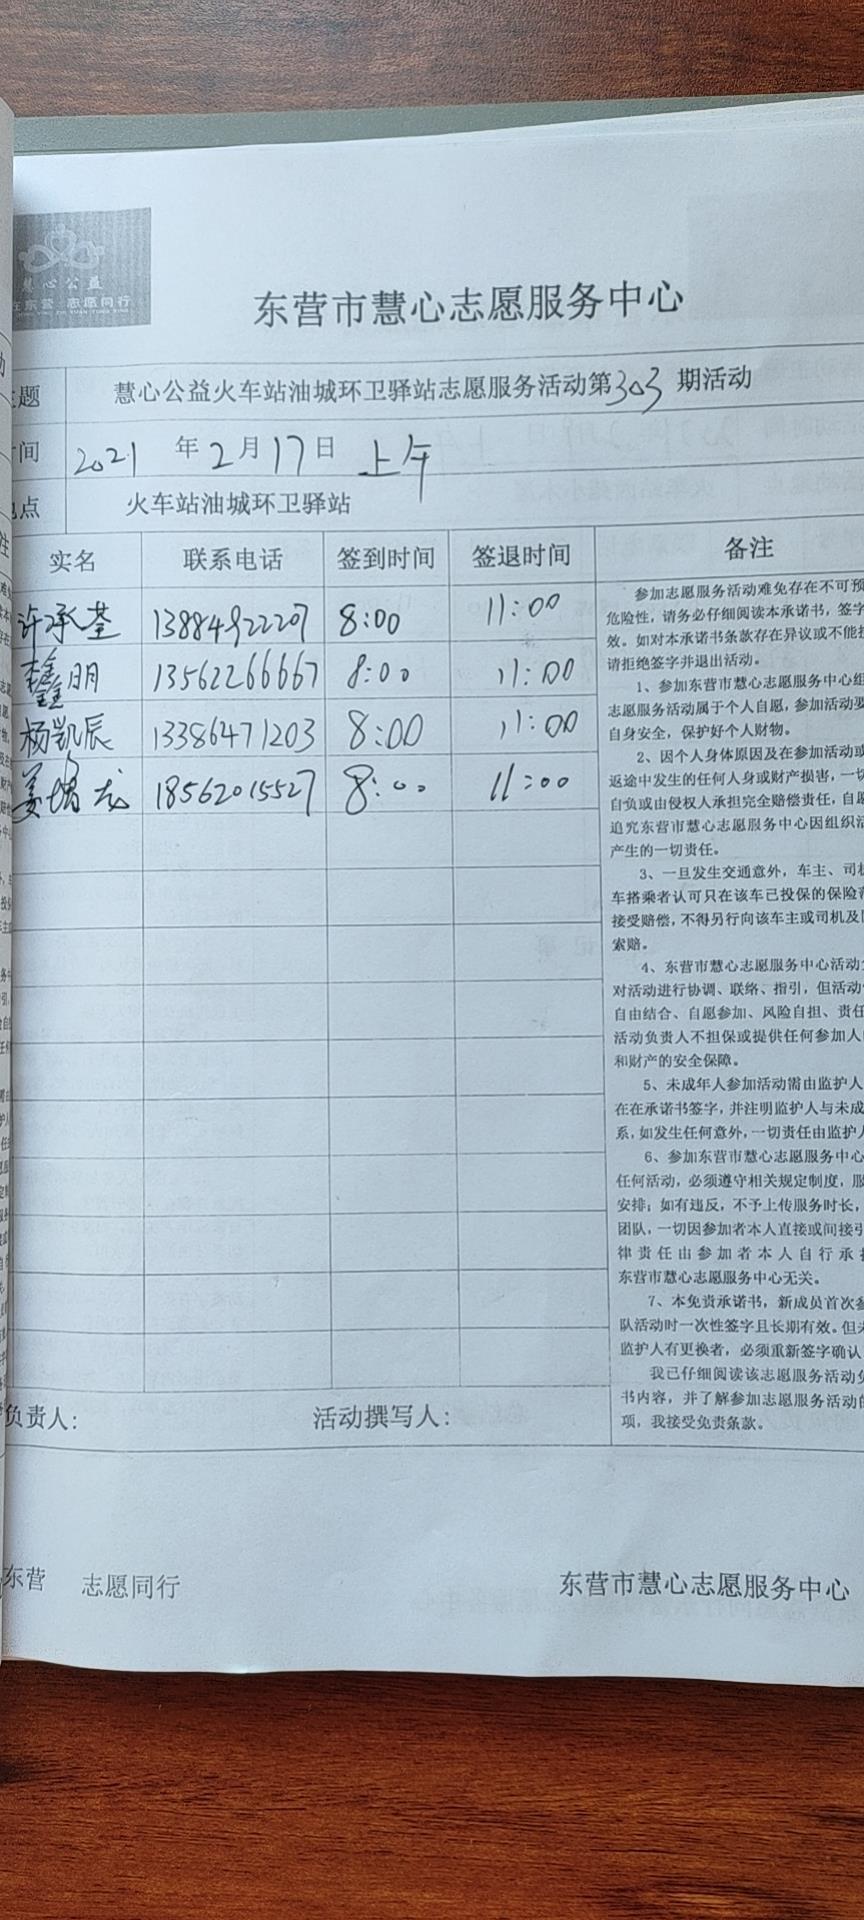 慧心公益
在东营 志愿同行
东营市慧心志愿服务中心
主题 慧心公益火车站油城环卫驿站志愿服务活动第303期活动
时间 2021年2月17日 上午
地点 火车站油城环卫驿站
实名 联系电话 签到时间 签退时间 备注
许承荃 13884922207 8:00 11:00
鑫明 13562266667 8:00 11:00
杨凯辰 13386471203 8:00 11:00
姜增龙 18562015527 8:00 11:00
参加志愿服务活动难免存在不可预
危险性，请务必仔细阅读本承诺书，签字
效。如对本承诺书条款存在异议或不能接
请拒绝签字并退出活动。
1、参加东营市慧心志愿服务中心组
志愿服务活动属于个人自愿，参加活动要
自身安全，保护好个人财物。
2、因个人身体原因及在参加活动或
返途中发生的任何人身或财产损害，一切
自负或由侵权人承担完全赔偿责任，自愿
追究东营市慧心志愿服务中心因组织活
产生的一切责任。
3、一旦发生交通意外，车主、司机
车搭乘者认可只在该车已投保的保险范
接受赔偿，不得另行向该车主或司机及
索赔。
4、东营市慧心志愿服务中心活动负
对活动进行协调、联络、指引，但活动
自由结合、自愿参加、风险自担、责任
活动负责人不担保或提供任何参加人
和财产的安全保障。
5、未成年人参加活动需由监护人
在在承诺书签字，并注明监护人与未成
系，如发生任何意外，一切责任由监护人
6、参加东营市慧心志愿服务中心
任何活动，必须遵守相关规定制度，服
安排；如有违反，不予上传服务时长，
团队，一切因参加者本人直接或间接引
律责任由参加者本人自行承担
东营市慧心志愿服务中心无关。
7、本免责承诺书，新成员首次参
队活动时一次性签字且长期有效。但未
监护人有更换者，必须重新签字确认
我已仔细阅读该志愿服务活动免
书内容，并了解参加志愿服务活动的
项，我接受免责条款。
负责人： 活动撰写人：
东营 志愿同行 东营市慧心志愿服务中心